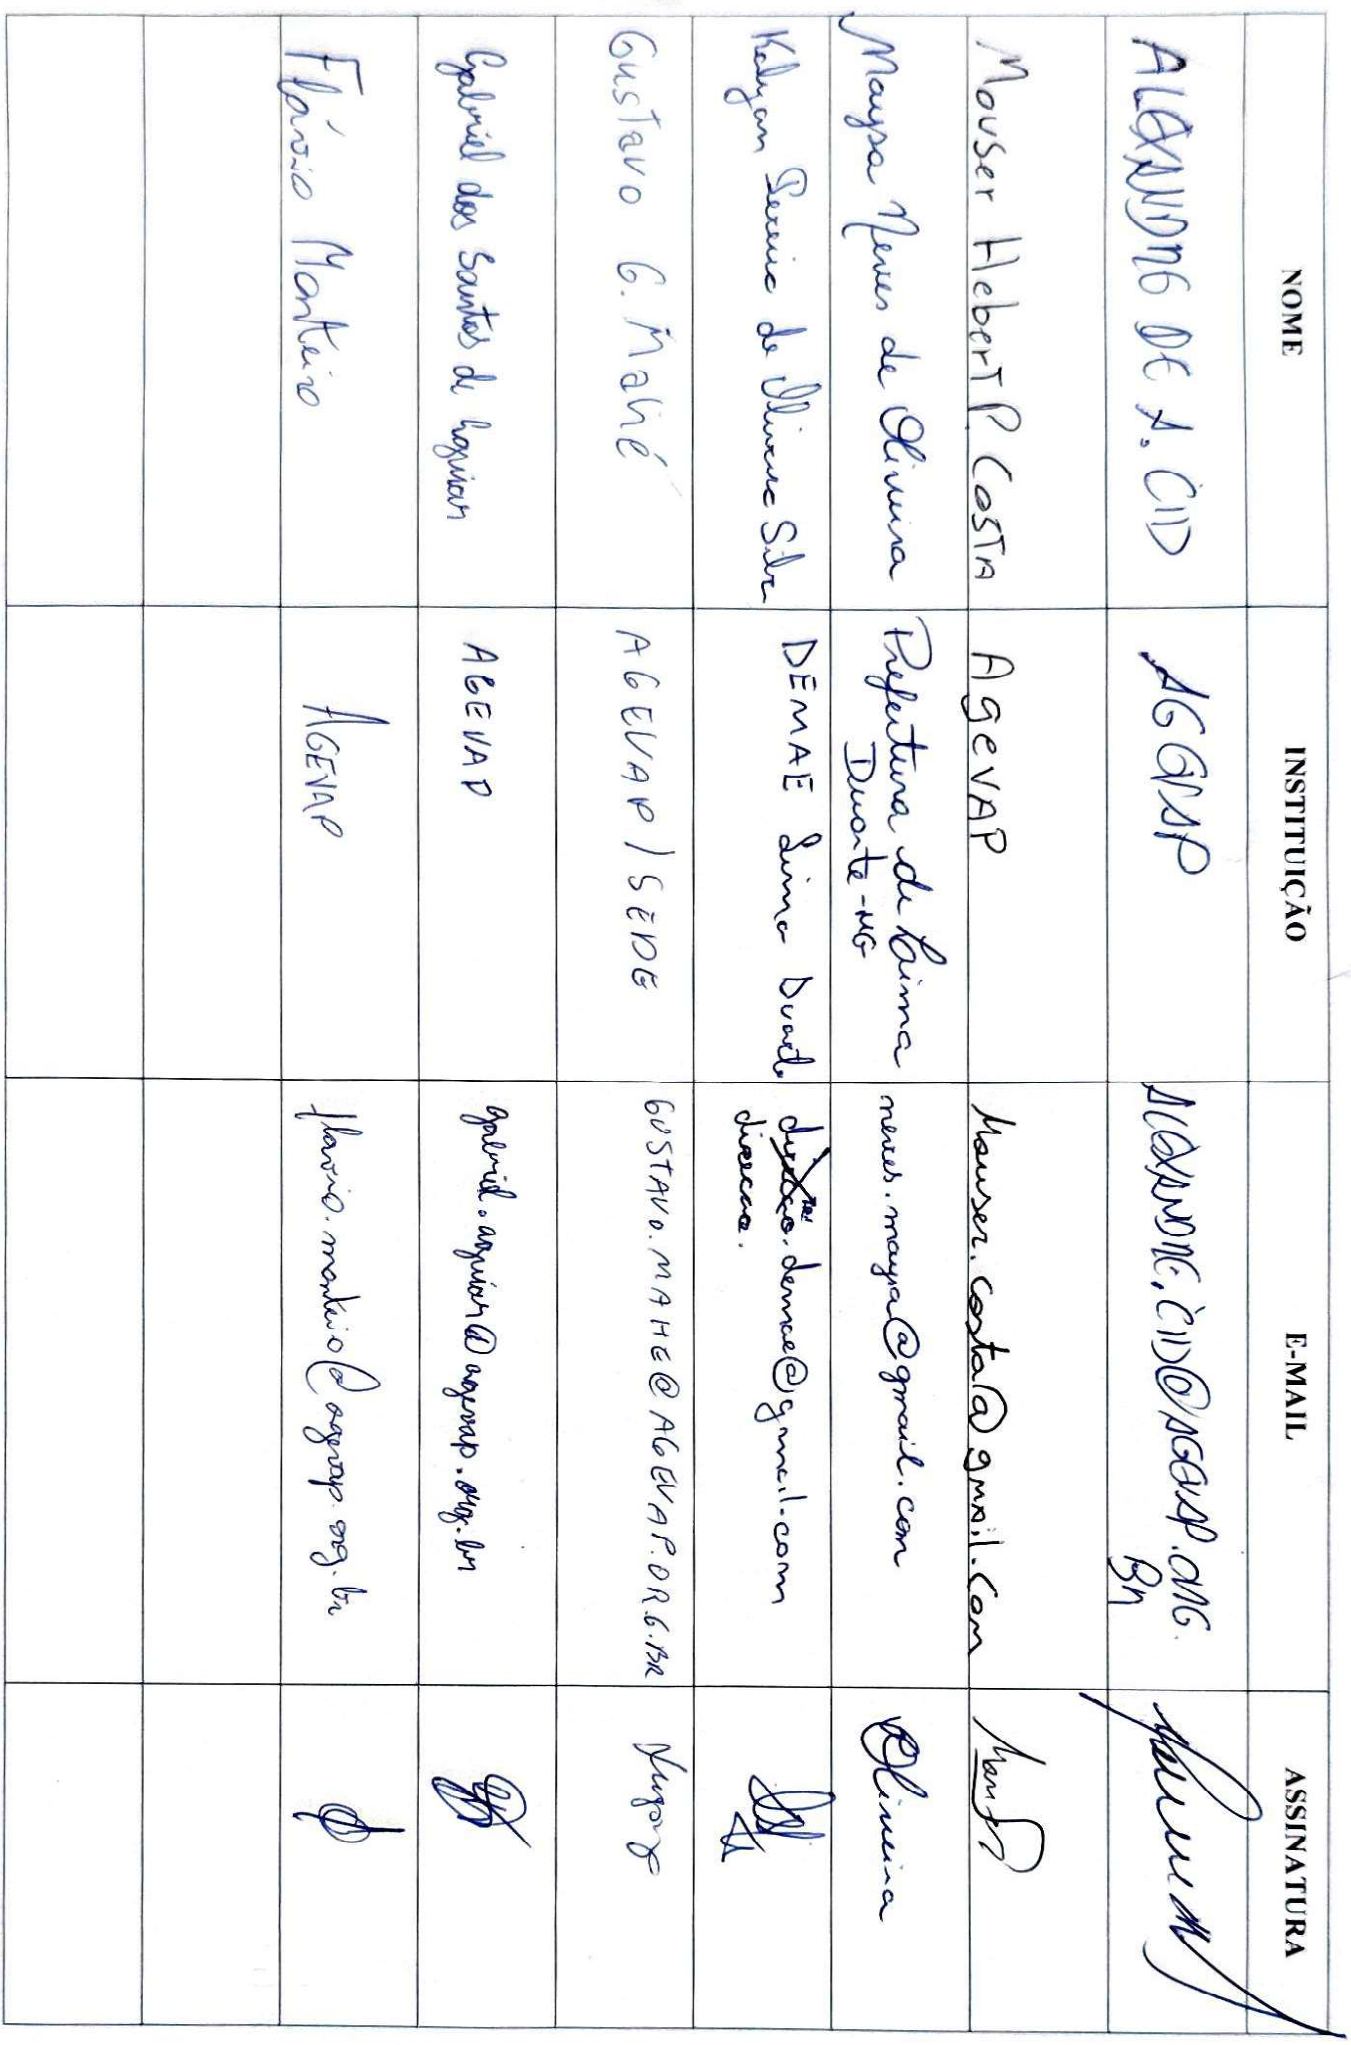 NOME INSTITUIÇÃO E-MAIL ASSINATURA
ALEXANDRE DE A. CID AGEVAP ALEXANDRE.CID@AGEVAP.ORG.
BR
Mouser Hebert P. Costa AgeVAP Mouser.costa@gmail.com
Maysa Neves de Oliveira Prefeitura de Lima neves.maysa@gmail.com Oliveira
Duarte-MG
Pereira de Oliveira Silva DEMAE Lima Duarte .demae@gmail.com
direcao.
Gustavo G. Mahé AGEVAP/SEDE GUSTAVO.MAHE@AGEVAP.ORG.BR
Gabriel dos Santos de Aguiar AGEVAP gabriel.aguiar@agevap.org.br
Flávio Monteiro AGEVAP flavio.monteiro@agevap.org.br